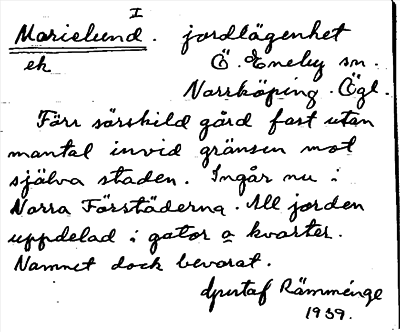 I
Marielund. jordlägenhet
ek Ö. Eneby sn.
Norrköping. Ögl.
Förr särskild gård fast utan
mantal invid gränsen mot
själva staden. Ingår nu i
Norra Förstäderna. All jorden
uppdelad i gator o kvarter.
Namnet dock bevarat.
Gustaf Rämmenge
1939.